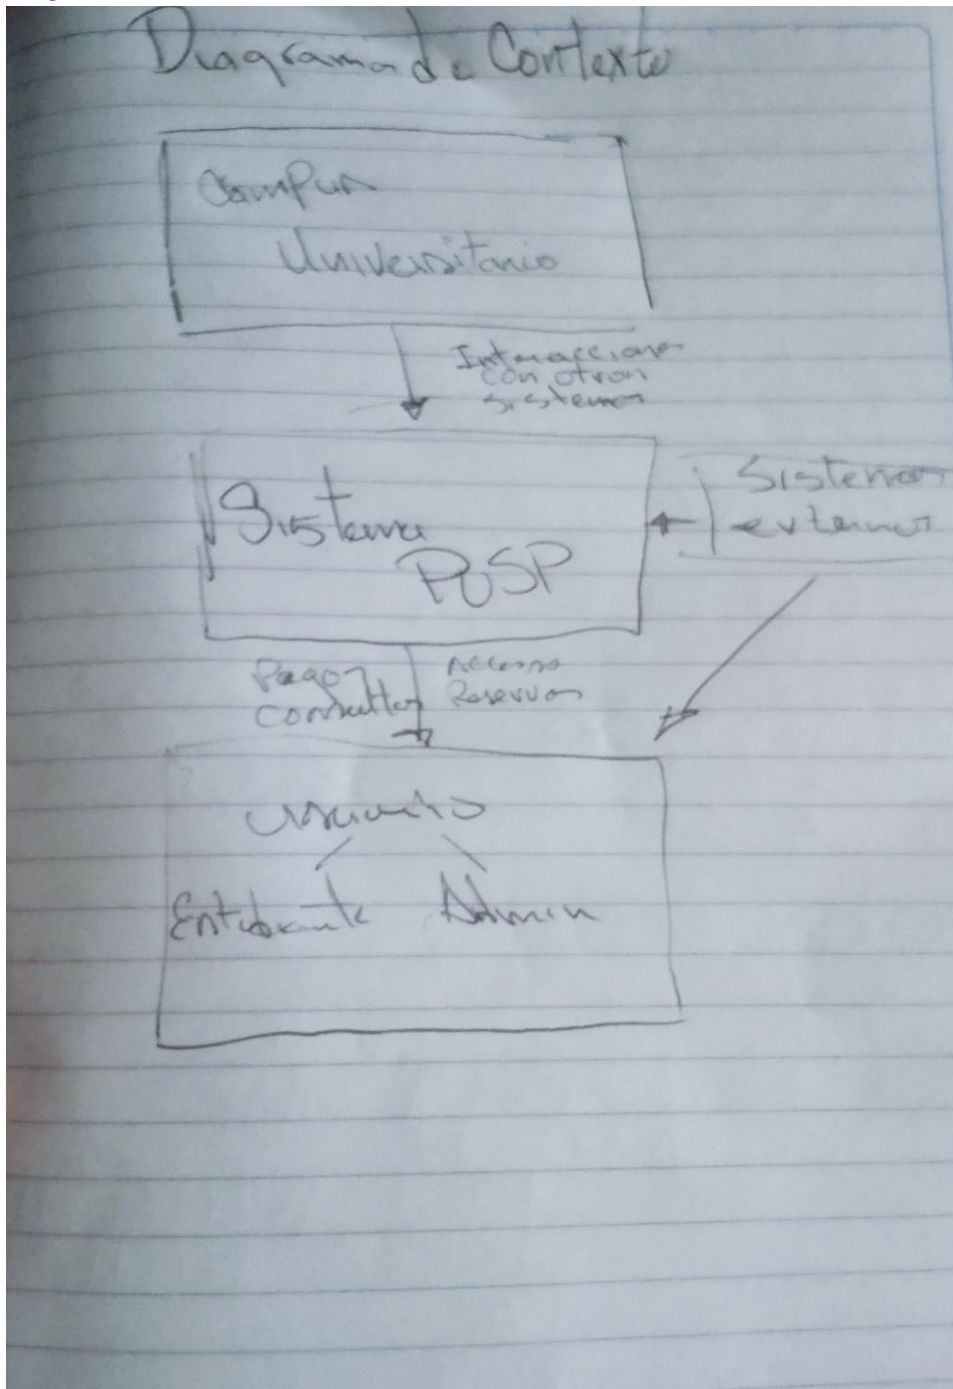 Diagrama de Contexto
Campus
Universitario
Interacciones
con otros
sistemas
Sistema
PUSP
Sistemas
externos
Pagos
Consultas
Accesos
Reservas
Usuario
Estudiante
Admin